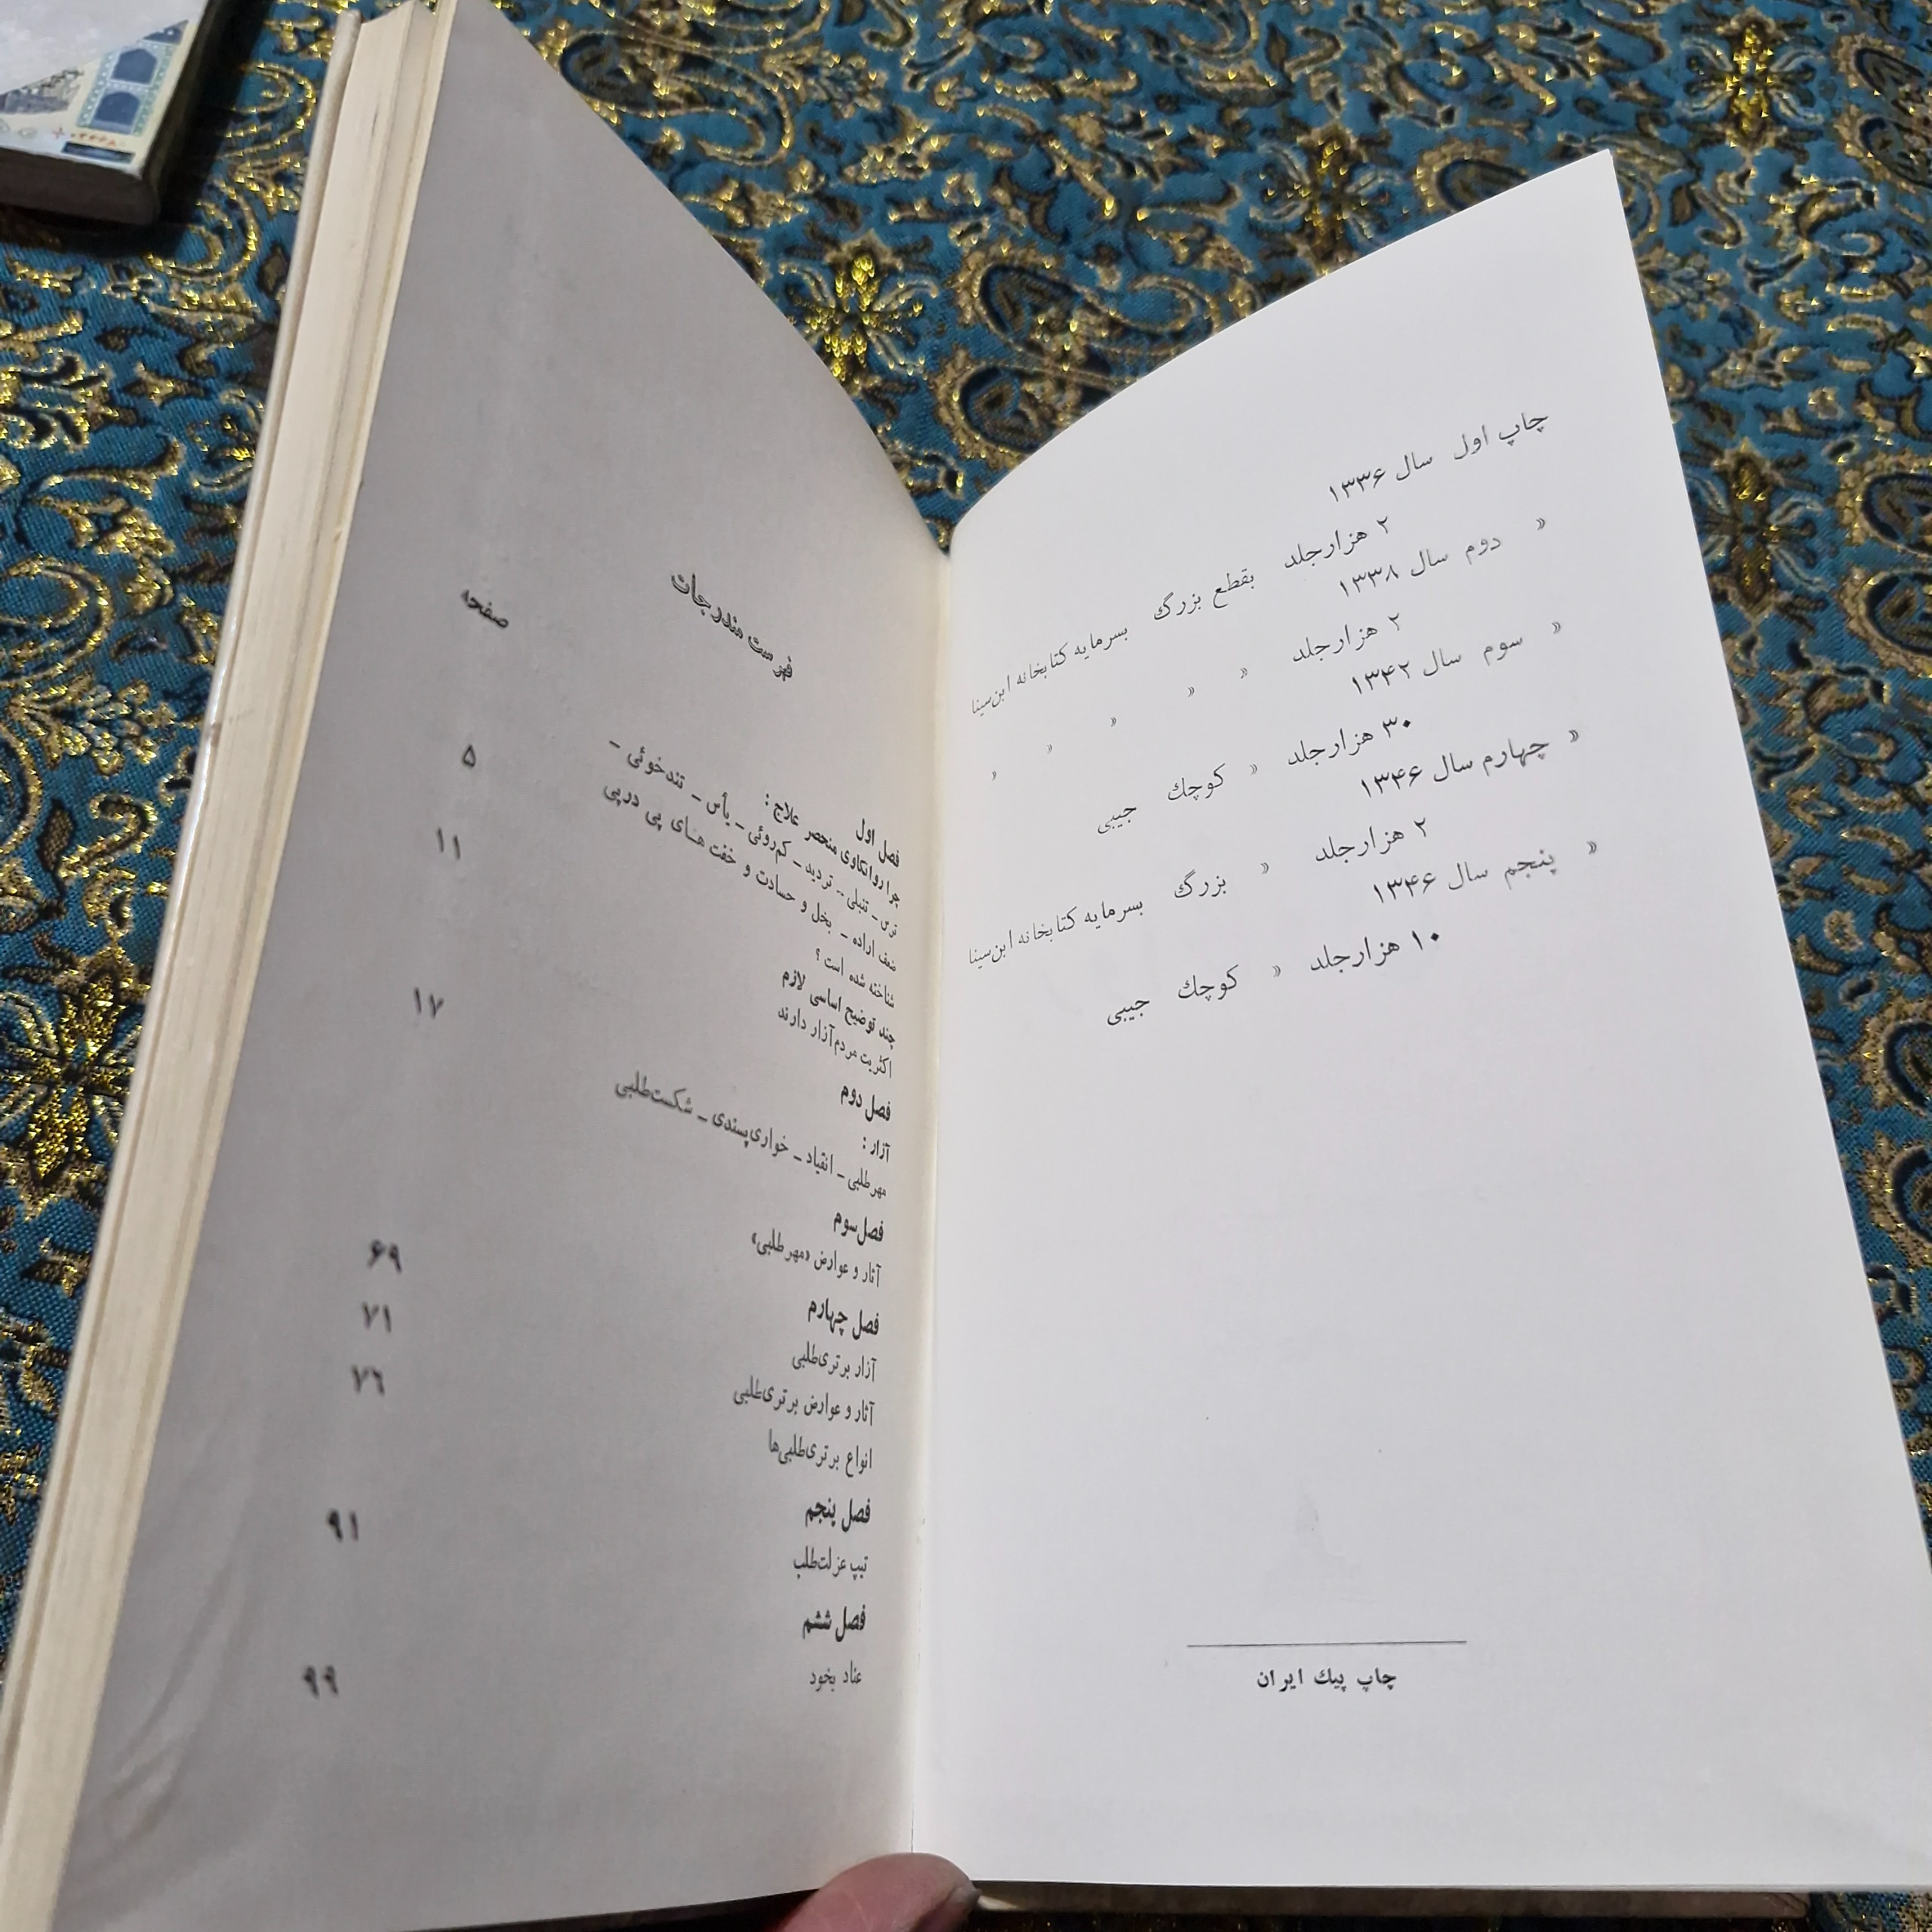 چاپ اول سال ۱۳۳۶
۲ هزارجلد بقطع بزرگ بسرمایه کتابخانه ابن‌سینا
« دوم سال ۱۳۳۸
۲ هزارجلد « « « « «
« سوم سال ۱۳۴۲
۳۰ هزارجلد « کوچک جیبی
« چهارم سال ۱۳۴۶
۲ هزارجلد « بزرگ بسرمایه کتابخانه ابن‌سینا
« پنجم سال ۱۳۴۶
۱۰ هزارجلد « کوچک جیبی
چاپ پیک ایران
فهرست مندرجات
صفحه
فصل اول
چرا روانکاوی منحصر علاج :
ترس ـ تنبلی ـ تردید ـ کم‌روئی ـ یأس ـ تندخوئی ـ ۵
ضعف اراده ـ بخل و حسادت و خفت هـای پی درپی
شناخته شده است ؟
چند توضیح اساسی لازم ۱۱
اکثریت مردم آزار دارند
فصل دوم
آزار :
مهرطلبی ـ انقیاد ـ خواری‌پسندی ـ شکست‌طلبی ۱۷
فصل سوم
آثار و عوارض «مهرطلبی» ۶۹
فصل چهارم
آزار برتری‌طلبی ۷۱
آثار و عوارض برتری‌طلبی ۷۶
انواع برتری‌طلبی‌ها
فصل پنجم
تیپ عزلت‌طلب ۹۱
فصل ششم
عناد بخود ۹۹